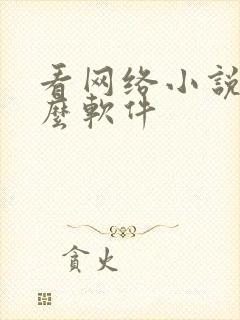 看网络小説
麽軟件
貪火